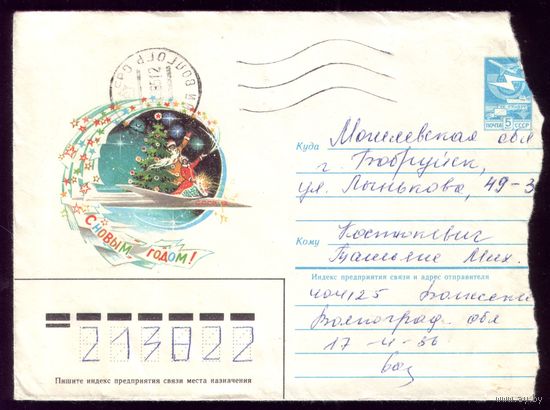 ПОЧТА 5 СССР
С НОВЫМ ГОДОМ!
Куда Могилевская обл
г. Бобруйск,
ул. Лынькова, 49-3
Кому Костюкевич
Татьяне Мих.
Индекс предприятия связи и адрес отправителя
404125 Волжски
Волгоград. обл
17-4-56
213822
Пишите индекс предприятия связи места назначения
www.ay.by